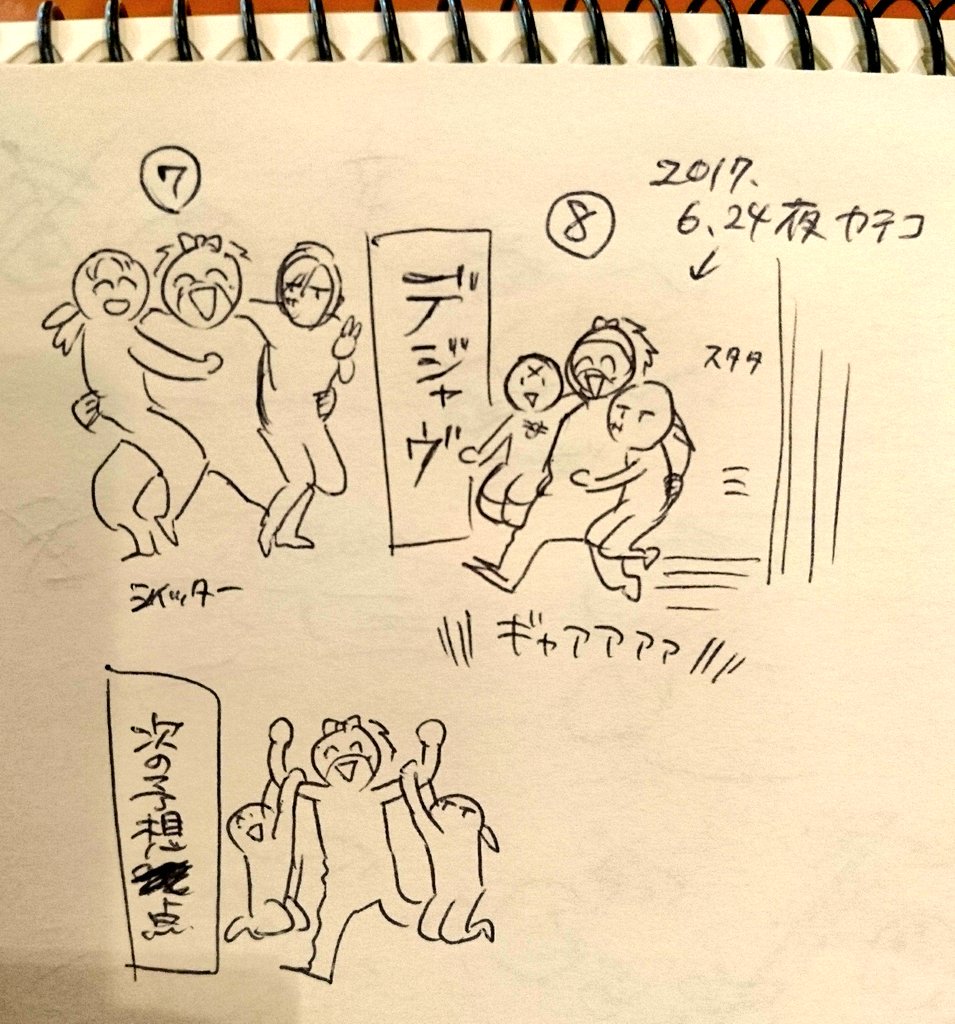 ⑦
⑧
2017.
6.24夜 カテコ
デジャヴ
スタタ
ギャアアアア
次の予想点